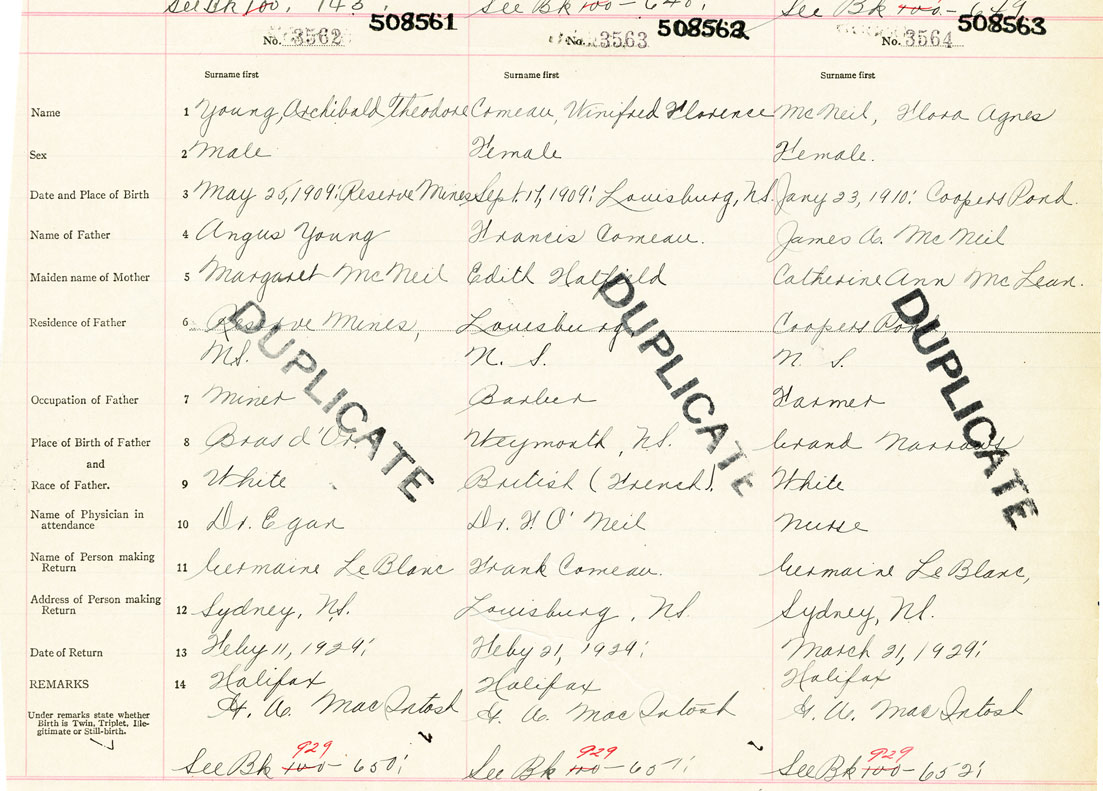 See Bk 100, 143, See Bk 100 - 640, See Bk 100 - 649
508561 508562 508563
No. 3562 No. 3563 No. 3564
Surname first Surname first Surname first
Name 1 Young, Archibald Theodore Comeau, Winifred Florence McNeil, Flora Agnes
Sex 2 Male Female Female.
Date and Place of Birth 3 May 25, 1909; Reserve Mines Sept. 17, 1909; Louisburg, N.S. Jany 23, 1910; Coopers Pond.
Name of Father 4 Angus Young Francis Comeau. James A. McNeil
Maiden name of Mother 5 Margaret McNeil Edith Hatfield Catherine Ann McLean.
Residence of Father 6 Reserve Mines, Louisburg Coopers Pond
N.S. N. S. N. S.
DUPLICATE DUPLICATE DUPLICATE
Occupation of Father 7 Miner Barber Farmer
Place of Birth of Father 8 Bras d'Or. Weymouth, N.S. Grand Narrows
and
Race of Father. 9 White British (French). White
Name of Physician in
attendance 10 Dr. Egan Dr. F O'Neil Nurse
Name of Person making
Return 11 Germaine LeBlanc Frank Comeau. Germaine LeBlanc,
Address of Person making
Return 12 Sydney, N.S. Louisburg, N.S. Sydney, N.S.
Date of Return 13 Feby 11, 1929; Feby 21, 1929; March 21, 1929;
REMARKS 14 Halifax Halifax Halifax
Under remarks state whether
Birth is Twin, Triplet, Ille-
gitimate or Still-birth.
A. MacIntosh A. MacIntosh A. MacIntosh
929 929 929
See Bk 100 - 650; See Bk 100 - 651; See Bk 100 - 652;